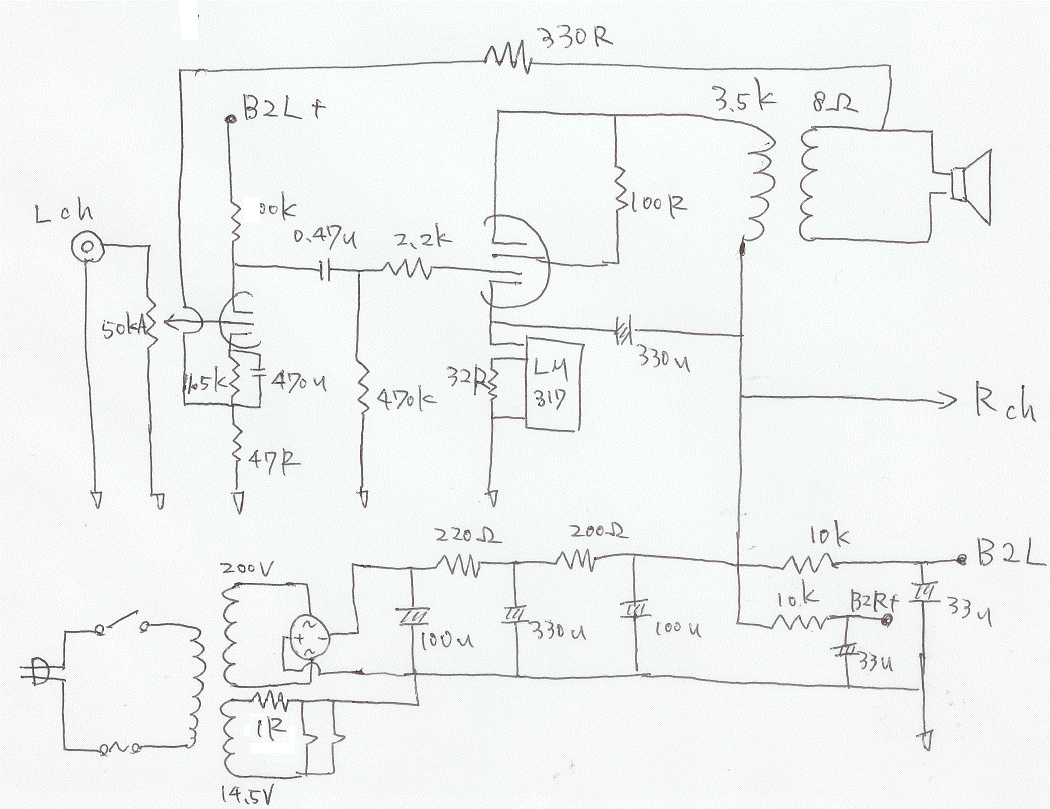 330R
3.5k 8Ω
B2L+
Lch
100R
0.47u 2.2k
50kA
330u
LM
317
32R
1.5k 470u
470k
Rch
47R
220Ω 200Ω
10k
B2L
200V
10k B2R+
33u
+ ~ -
~
100u 330u 100u
33u
1R
14.5V